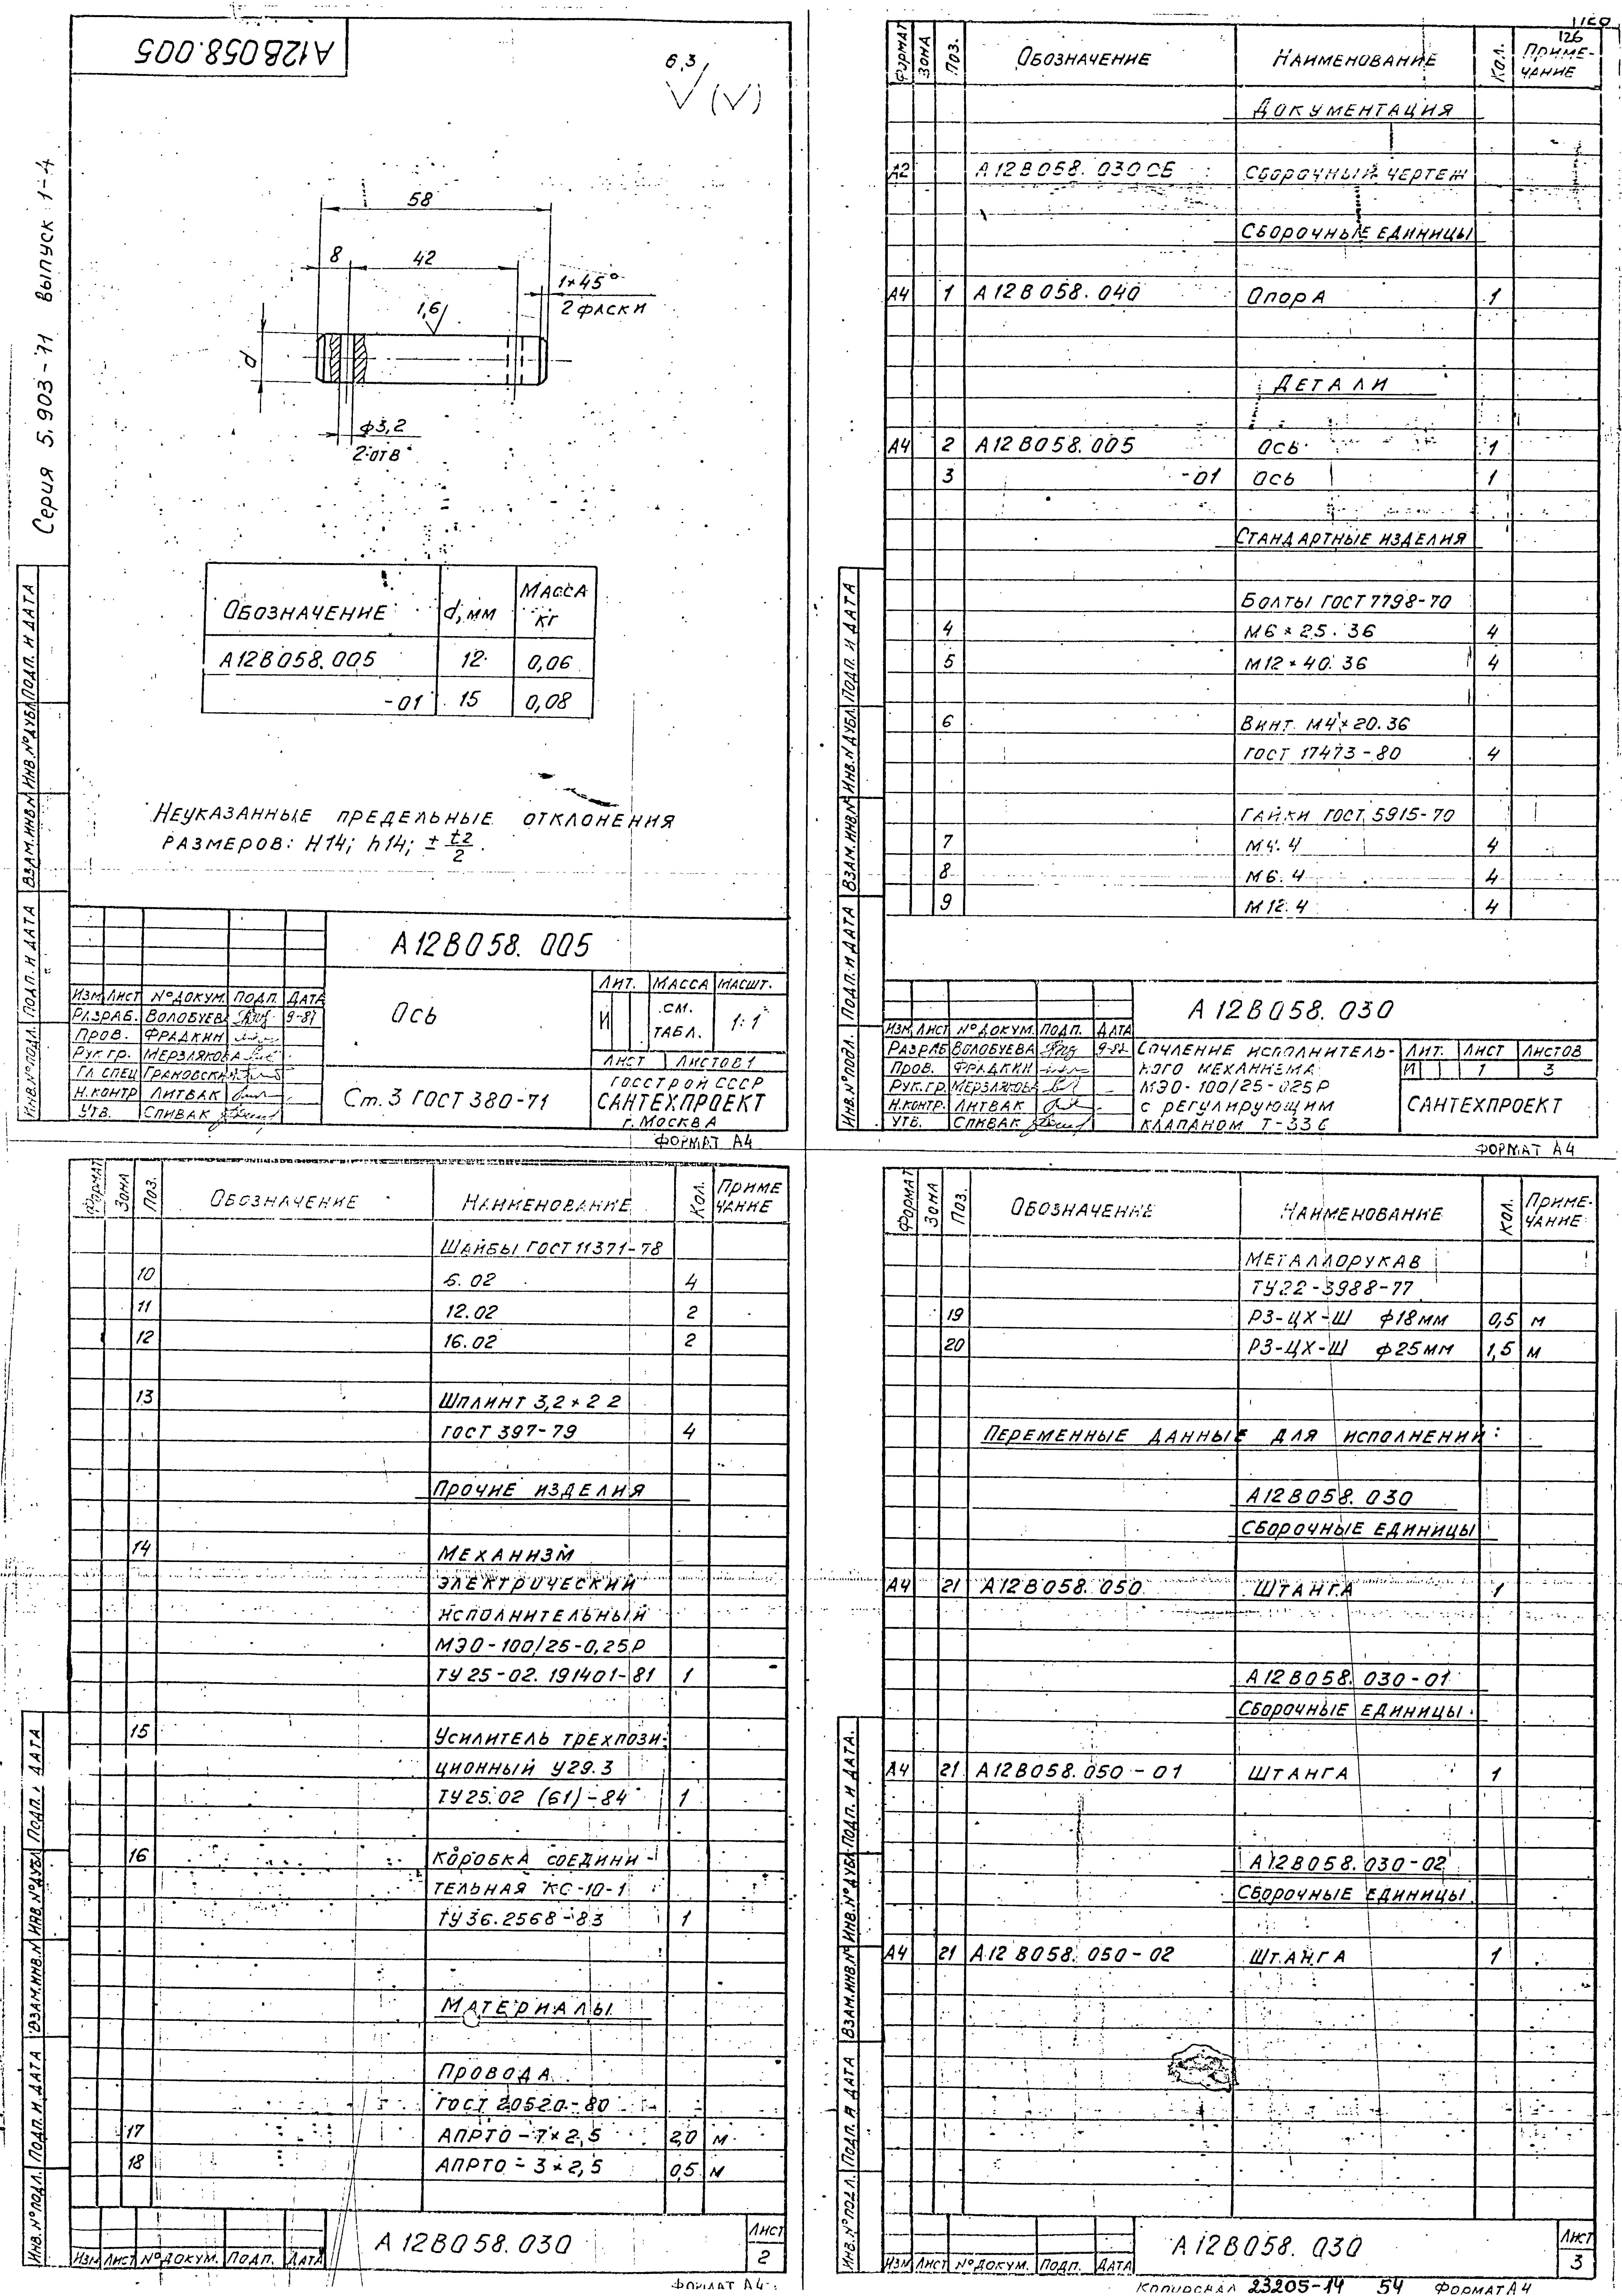 А12В058.005
6,3
Серия 5.903-11 выпуск 1-4
58
8 42
1×45°
2 фаски
1,6
d
ф3,2
2 отв
Обозначение d, мм Масса кг
А12В058.005 12 0,06
-01 15 0,08
Неуказанные предельные отклонения
размеров: Н14; h14; ± t2/2.
Инв.№подл. Подп. и дата Взам.инв.№ Инв.№дубл. Подп. и дата
А12В058. 005
Изм Лист №докум. Подп. Дата
Разраб. Волобуева 9-87
Пров. Фрадкин
Рук.гр. Мерзлякова
Гл.спец Грановский
Н.контр Литвак
Утв. Спивак
Ось
Ст.3 ГОСТ 380-71
Лит. Масса Масшт.
И См. табл. 1:1
Лист Листов 1
Госстрой СССР
САНТЕХПРОЕКТ
г. Москва
Формат А4
126
Формат Зона Поз. Обозначение Наименование Кол. Приме-
чание
Документация
А2 А12В058. 030СБ Сборочный чертеж
Сборочные единицы
А4 1 А12В058.040 Опора 1
Детали
А4 2 А12В058.005 Ось 1
3 -01 Ось 1
Стандартные изделия
Болты ГОСТ 7798-70
4 М6×25.36 4
5 М12×40.36 4
6 Винт М4×20.36
ГОСТ 17473-80 4
Гайки ГОСТ 5915-70
7 М4.4 4
8 М6.4 4
9 М12.4 4
Инв.№подл. Подп. и дата Взам.инв.№ Инв.№дубл. Подп. и дата
А12В058.030
Изм Лист №докум. Подп. Дата
Разраб Волобуева 9-87
Пров. Фрадкин
Рук.гр. Мерзлякова
Н.контр. Литвак
Утв. Спивак
Сочление исполнитель-
ного механизма
МЭО-100/25-025Р
с регулирующим
клапаном Т-33б
Лит. Лист Листов
И 1 3
САНТЕХПРОЕКТ
Формат А4
Формат Зона Поз. Обозначение Наименование Кол. Приме
чание
Шайбы ГОСТ 11371-78
10 6.02 4
11 12.02 2
12 16.02 2
13 Шплинт 3,2×22
ГОСТ 397-79 4
Прочие изделия
14 Механизм
электрический
исполнительный
МЭО-100/25-0,25Р
ТУ 25-02.191401-81 1
15 Усилитель трехпози-
ционный У29.3
ТУ25.02 (61)-84 1
16 Коробка соедини-
тельная КС-10-1
ТУ36.2568-83 1
Материалы
Провода
ГОСТ 20520-80
17 АПРТО-7×2,5 2,0 м
18 АПРТО-3×2,5 0,5 м
Инв.№подл. Подп. и дата Взам.инв.№ Инв.№дубл. Подп. и дата
А12В058.030
Изм Лист №докум. Подп. Дата
Лист
2
Формат А4
Формат Зона Поз. Обозначение Наименование Кол. Приме-
чание
Металлорукав
ТУ22-3988-77
19 РЗ-ЦХ-Ш ф18мм 0,5 м
20 РЗ-ЦХ-Ш ф25мм 1,5 м
Переменные данные для исполнений:
А12В058.030
Сборочные единицы
А4 21 А12В058.050 Штанга 1
А12В058.030-01
Сборочные единицы
А4 21 А12В058.050-01 Штанга 1
А12В058.030-02
Сборочные единицы
А4 21 А12В058.050-02 Штанга 1
Инв.№подл. Подп. и дата Взам.инв.№ Инв.№дубл. Подп. и дата.
А12В058.030
Изм Лист №докум. Подп. Дата
Лист
3
Копировал 23205-14 54 Формат А4